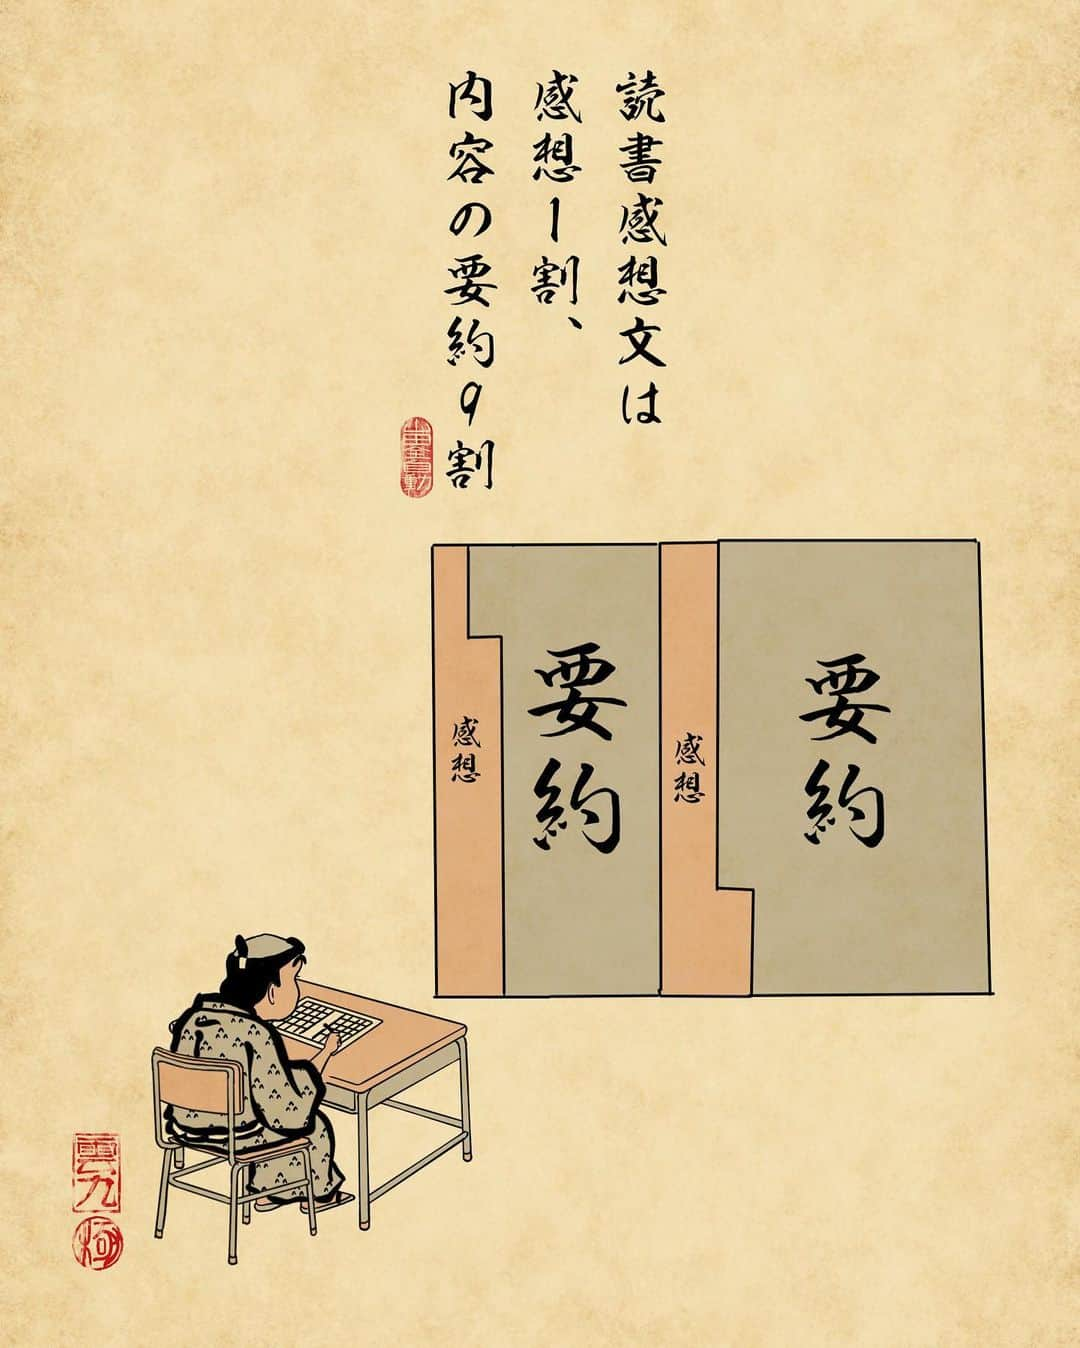 読書感想文は
感想1割、
内容の要約9割
要約
感想
要約
感想